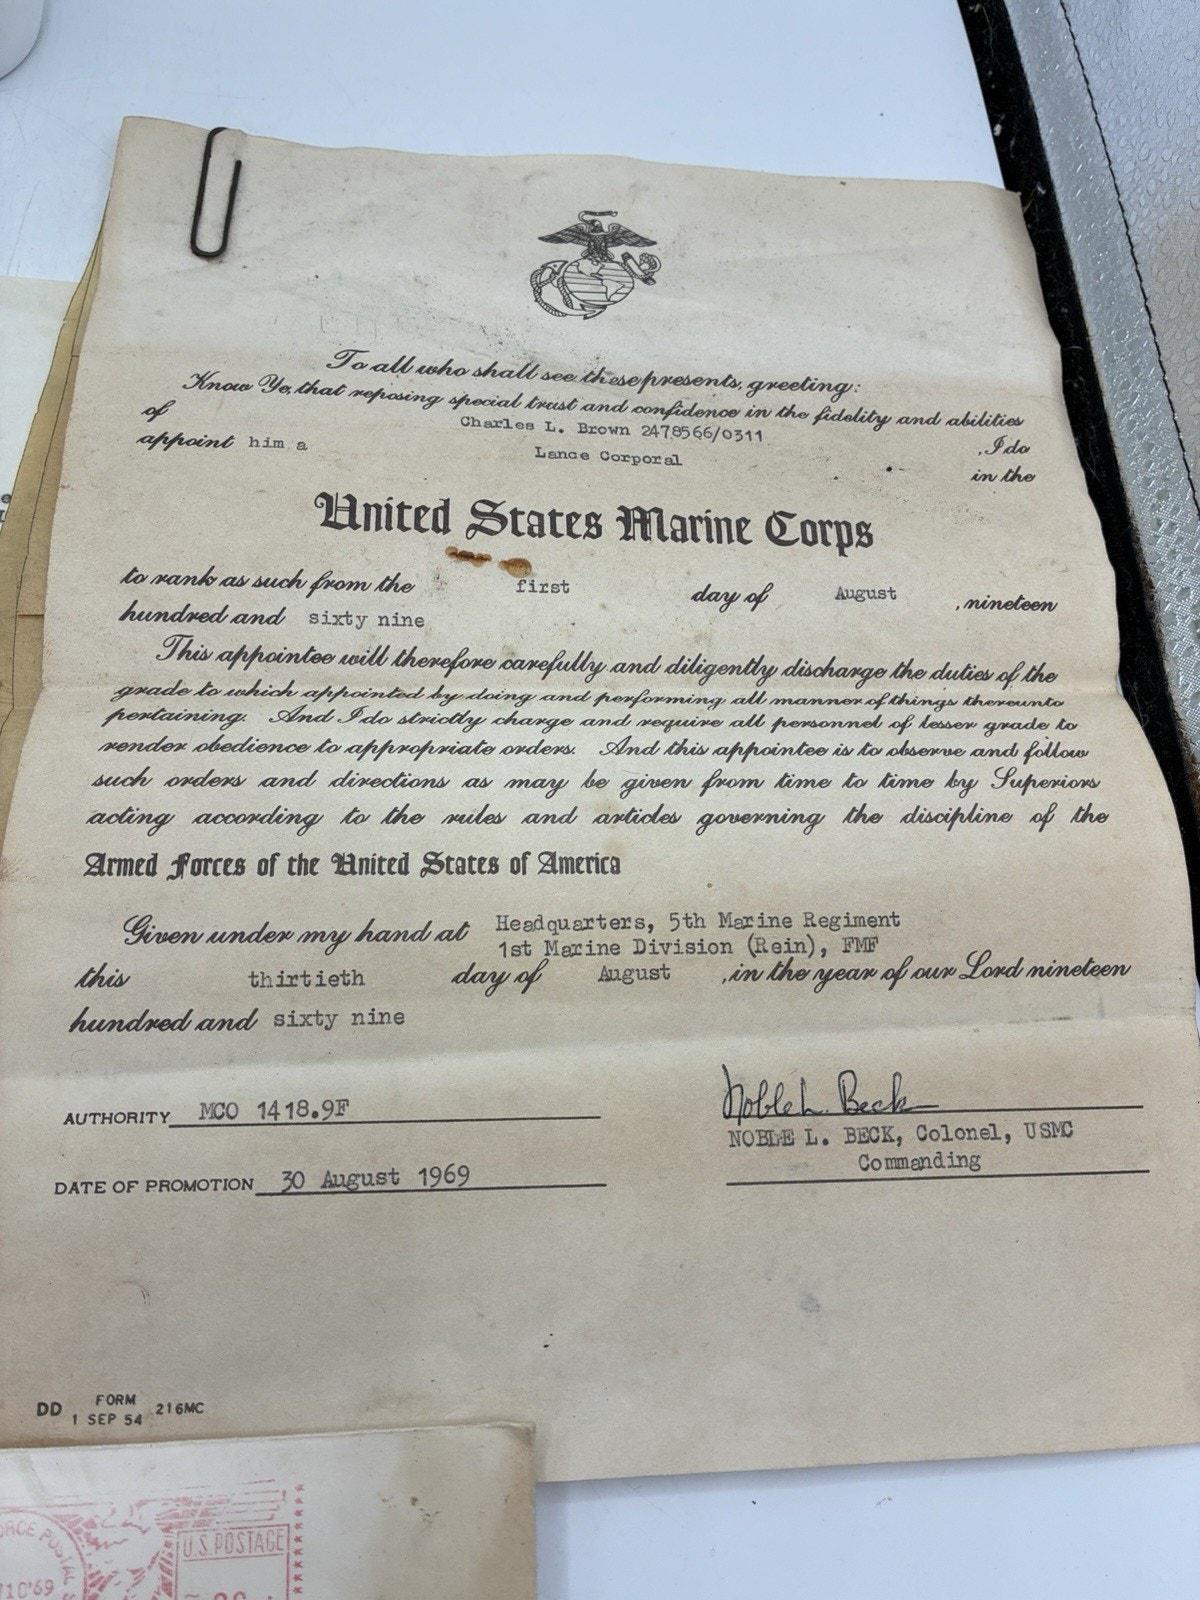 To all who shall see these presents, greeting:
Know Ye, that reposing special trust and confidence in the fidelity and abilities
of Charles L. Brown 2478566/0311 , I do
appoint him a Lance Corporal in the
United States Marine Corps
to rank as such from the first day of August , nineteen
hundred and sixty nine
This appointee will therefore carefully and diligently discharge the duties of the
grade to which appointed by doing and performing all manner of things thereunto
pertaining. And I do strictly charge and require all personnel of lesser grade to
render obedience to appropriate orders. And this appointee is to observe and follow
such orders and directions as may be given from time to time by Superiors
acting according to the rules and articles governing the discipline of the
Armed Forces of the United States of America
Given under my hand at Headquarters, 5th Marine Regiment
1st Marine Division (Rein), FMF
this thirtieth day of August , in the year of our Lord nineteen
hundred and sixty nine
Noble L. Beck
AUTHORITY MCO 1418.9F
NOBLE L. BECK, Colonel, USMC
Commanding
DATE OF PROMOTION 30 August 1969
DD FORM 216MC
1 SEP 54
U.S. POSTAGE